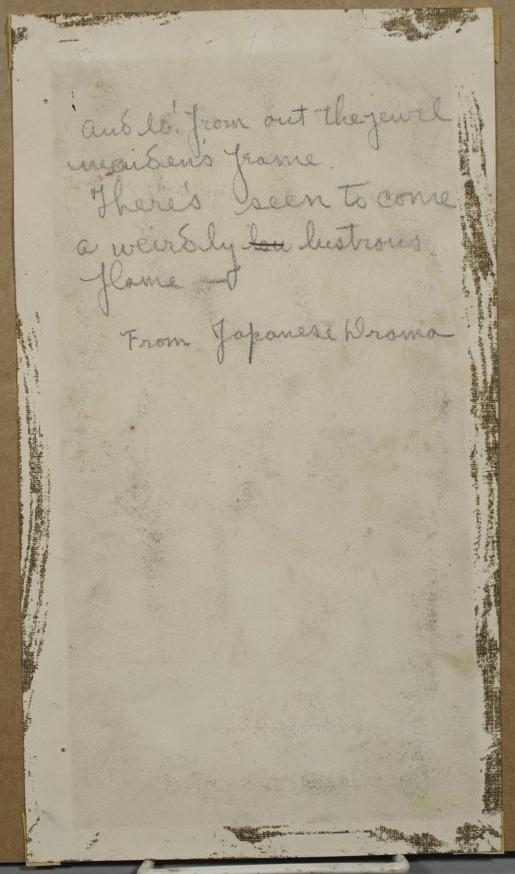 and lo! from out the jewel
maiden's frame.
There's seen to come
a weirdly lu lustrous
flame —
From Japanese Drama